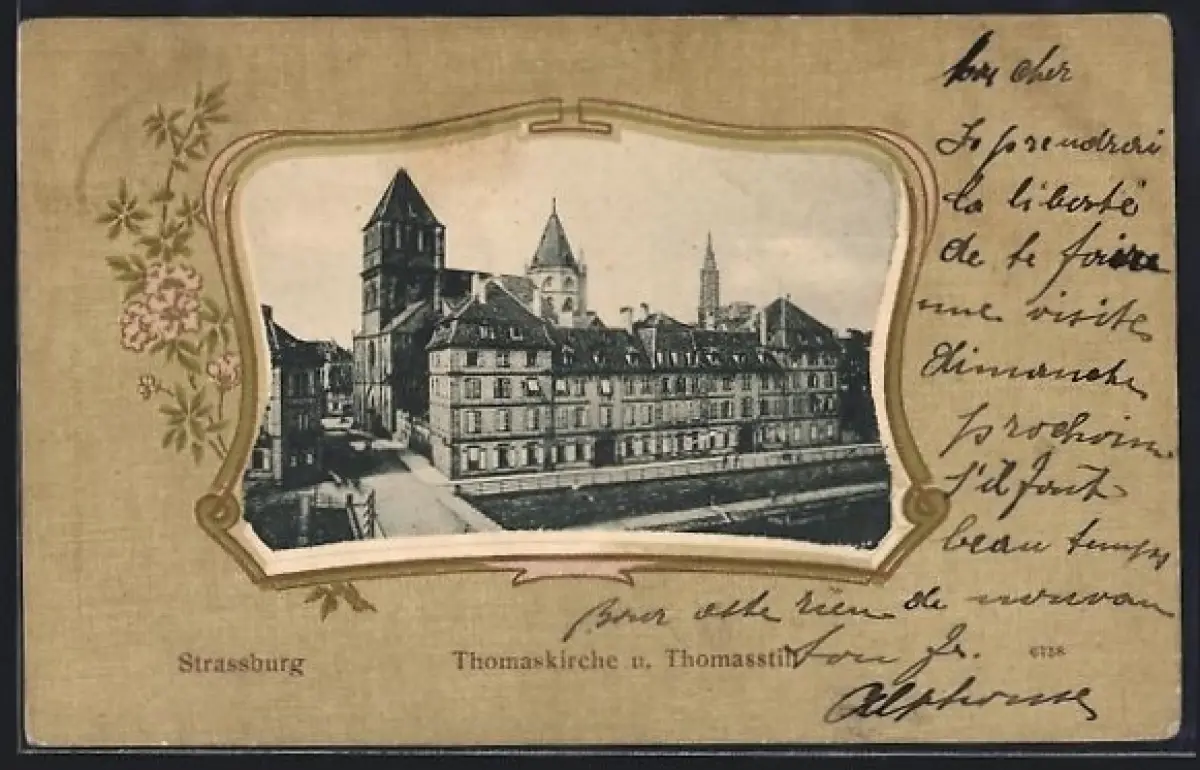 Mon cher
Je prendrai
la liberté
de te faire
une visite
dimanche
prochaine
s'il font
beau temps
Pour otte rien de nouvau
Ton fr.
Alphonse
Strassburg
Thomaskirche u. Thomasstift
6758